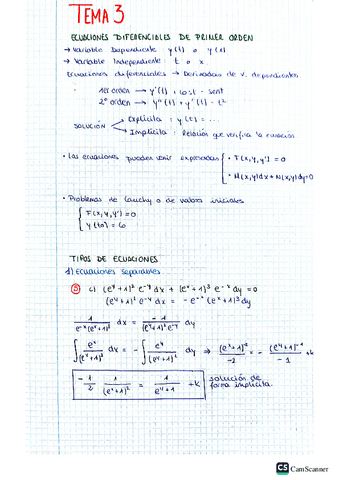 TEMA 3
ECUACIONES DIFERENCIALES DE PRIMER ORDEN
→ Variable Dependiente: y(t) o y(x)
→ Variable Independiente: t o x
Ecuaciones diferenciales → Derivadas de v. dependientes.
1er orden → y'(t) + cost - sent
2º orden → y''(t) + y'(t) - t²
SOLUCIÓN Explícita: y(t) = ...
Implícita: Relación que verifica la ecuación
• Las ecuaciones pueden venir expresadas • F(x,y,y') = 0
• M(x,y)dx + N(x,y)dy=0
• Problemas de Cauchy o de valores iniciales
F(x,y,y') = 0
TIPOS DE ECUACIONES
1) Ecuaciones separables
③ c) (e^y+1)² e^-y dx + (e^x+1)³ e^-x dy = 0
(e^y+1)² e^-y dx = -e^-x (e^x+1)³ dy
1/(e^-x(e^x+1)³) dx = -1/((e^y+1)² e^-y) dy
∫ e^x/(e^x+1)³ dx = - ∫ e^y/(e^y+1)² dy ⇒ (e^x+1)^-2/-2 = - (e^y+1)^-1/-1 +k
-1/2 1/(e^x+1)² = 1/(e^y+1) +k solución de
forma implícita
CS CamScanner